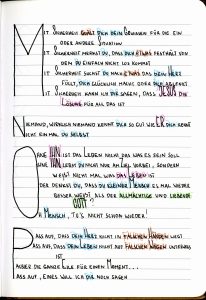 MIT SICHERHEIT QUÄLT DICH DEIN GEWISSEN FÜR DIE EIN
ODER ANDERE SITUATION
MIT SICHERHEIT MERKST DU, DASS DICH ETWAS FESTHÄLT VON
DEM DU EINFACH NICHT LOS KOMMST
MIT SICHERHEIT SUCHST DU NACH ETWAS DAS DEIN HERZ
FÜLLT, DICH GLÜCKLICH MACHT ODER DICH ABLENKT
MIT SICHERHEIT KANN ICH DIR SAGEN, DASS JESUS DIE
LÖSUNG FÜR ALL DAS IST
NIEMAND, WIRKLICH NIEMAND KENNT DICH SO GUT WIE ER DICH KENNT
NICHT EINMAL DU SELBST
OHNE IHN IST DAS LEBEN NICHT DAS WAS ES SEIN SOLL
OHNE IHN LEBST DU NICHT NUR AM VORBEI, SONDERN
WEIßT NICHT MAL WAS DAS LEBEN IST
ODER DENKST DU, DASS DU KLEINER MENSCH ES MAL WIEDER
BESSER WEIßT ALS DER ALLMÄCHTIGE UND LEBENDE
GOTT?
OH MENSCH, TU'S NICHT SCHON WIEDER!
PASS AUF, DASS DEIN HERZ NICHT IN FALSCHEN HÄNDEN LIEGT
PASS AUF, DASS DEIN LEBEN NICHT AUF FALSCHEN UNTERWEGS
IST
FÜR EINEN MOMENT...
PASS AUF, EINES WILL ICH DIR NOCH SAGEN